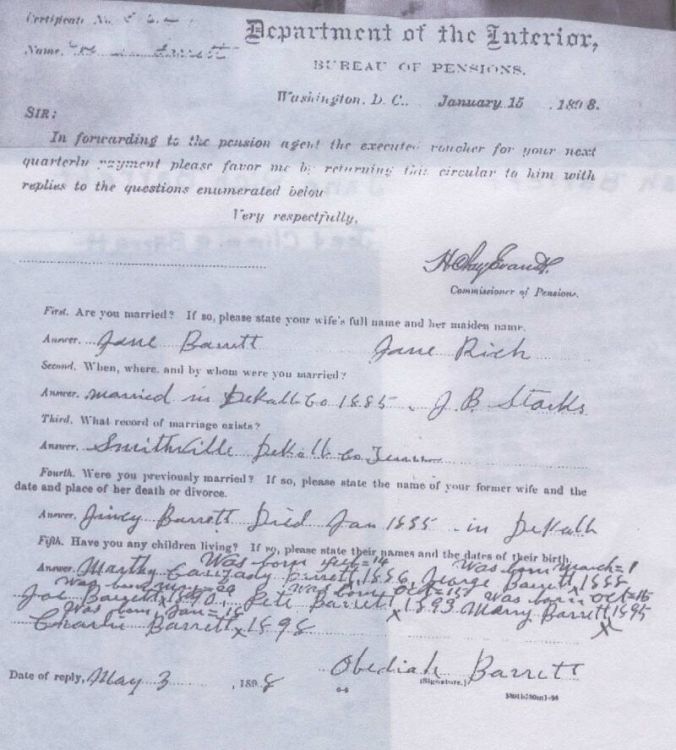 Certificate No.
Name, Barrett
Department of the Interior,
BUREAU OF PENSIONS.
Washington, D. C., January 15, 1898.
SIR:
In forwarding to the pension agent the executed voucher for your next
quarterly payment please favor me by returning this circular to him with
replies to the questions enumerated below
Very respectfully,
H Clay Evans
Commissioner of Pensions.
First. Are you married? If so, please state your wife's full name and her maiden name.
Answer. Jane Barrett Jane Rich
Second. When, where, and by whom were you married?
Answer. married in DeKalb Co 1885. J. B. Starks
Third. What record of marriage exists?
Answer. Smithville DeKalb Co Tenn
Fourth. Were you previously married? If so, please state the name of your former wife and the
date and place of her death or divorce.
Answer. Jincy Barrett Died Jan 1885 - in DeKalb
Fifth. Have you any children living? If so, please state their names and the dates of their birth.
Was born 14 Was born March = 1
Answer. Martha Barrett, 1886, George Barrett, 1888
Was born 20 Was born Oct = 15 Was born Oct = 15
Joe Barrett x 1890, Pete Barrett x 1893 Marry Barrett x 1895
Was born, Jan = 15
Charlie Barrett x 1898
Date of reply, May 3, 1898 Obediah Barrett
(Signature.)